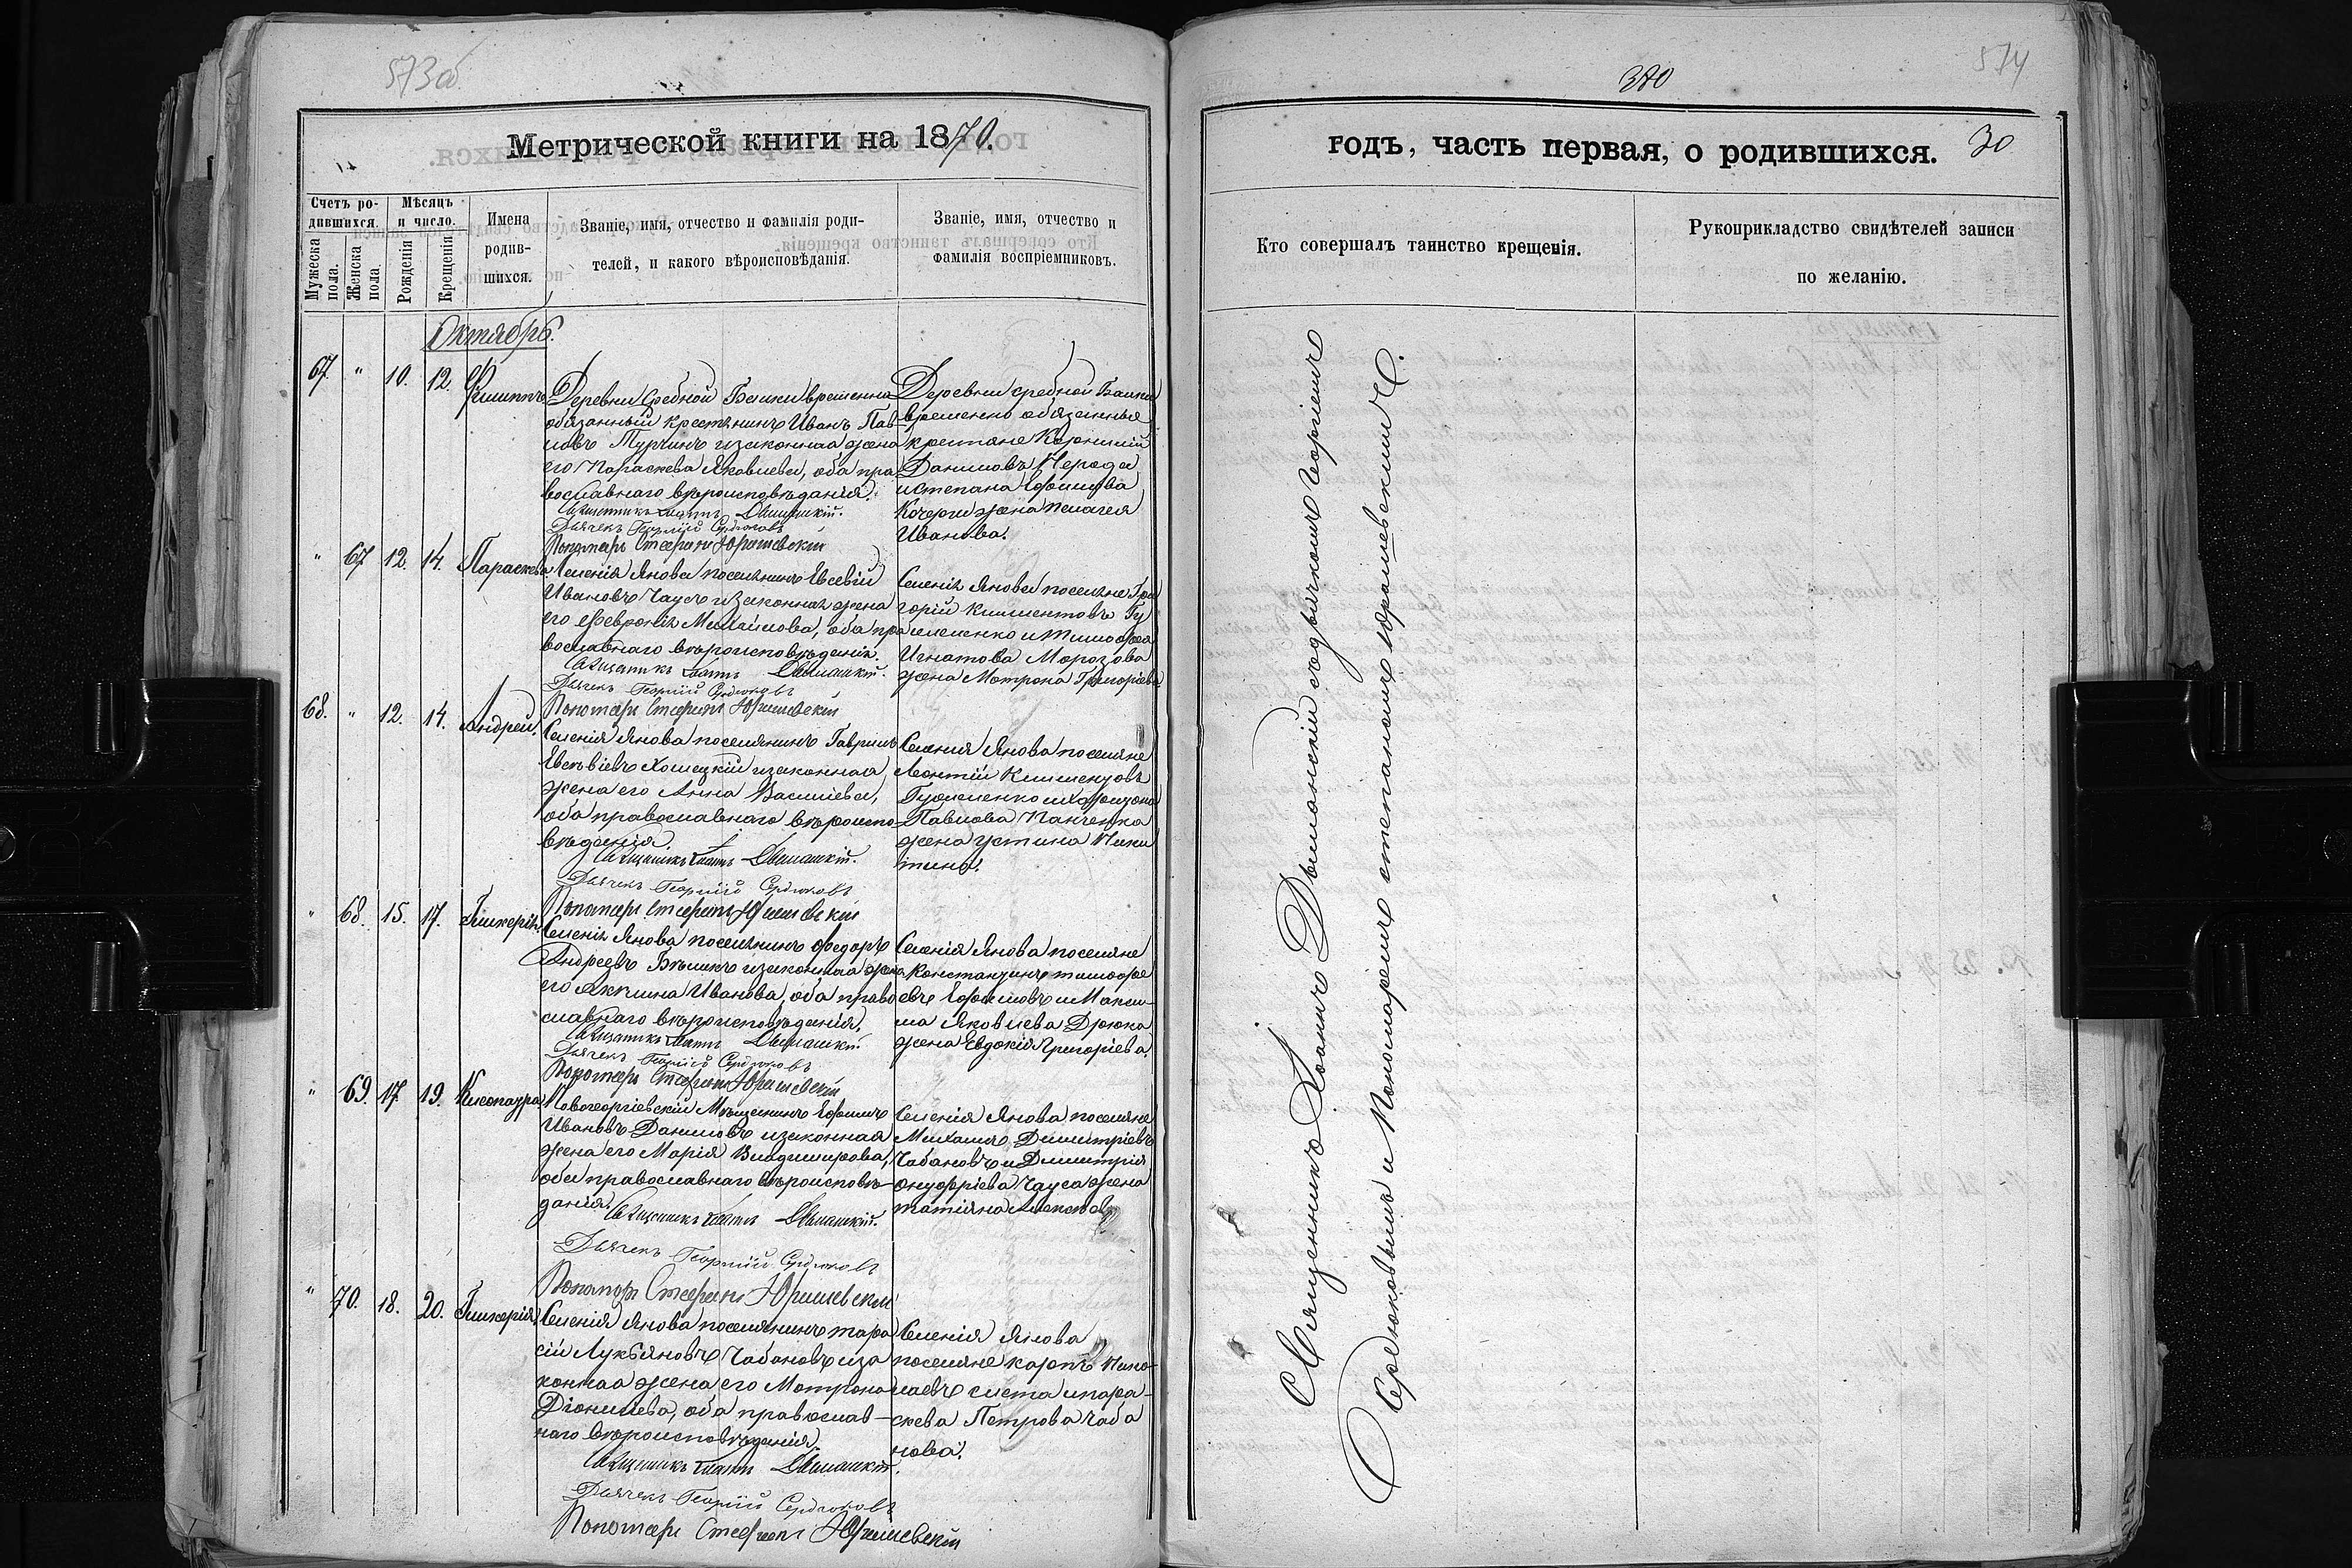 573об
Метрической книги на 1870.
Счетъ ро-
дившихся.
Мѣсяцъ
и число.
Мужеска
пола.
Женска
пола.
Рожденія
Крещенія
Имена
родив-
шихся.
Званіе, имя, отчество и фамилія роди-
телей, и какого вѣроисповѣданія.
Званіе, имя, отчество и
фамилія воспріемниковъ.
Октябрь.
67. " 10. 12. Филиппъ
Деревни Средной Балки временно
обязанный крестьянинъ Иванъ Пав-
ловъ Турчинъ изаконная жена
его Параскева Яковлева, оба пра
вославнаго вѣроисповѣданія.
Священникъ Іоаннъ
Дьячекъ Георгій Сердюковъ
Пономарь Стефанъ Юрашевскій
Деревни средной Балки
временно обязанныя
крестьяне Корнилій
Даниловъ
истепана Ефимова
Кочерги жена Пелагея
Иванова.
" 67 12. 14. Параскева
Селенія Янова поселянинъ Евсевій
Ивановъ Чаусъ изаконная жена
его Февронія Михайлова, оба пра
вославнаго вѣроисповѣданія.
Священникъ Іоаннъ
Дьячекъ Георгій Сердюковъ
Пономарь Стефанъ Юрашевскій
Селенія Янова поселяне Гри
горій Климентовъ Гу
меленко и Тимофея
Игнатова Морозова
жена Мотрона Григоріева
68. " 12. 14. Андрей.
Селенія Янова поселянинъ Гавріилъ
Евсевіевъ изаконная
жена его Анна Василіева,
оба православнаго вѣроиспо-
вѣданія.
Священникъ Іоаннъ
Дьячекъ Георгій Сердюковъ
Пономарь Стефанъ Юрашевскій
Селенія Янова поселяне
Леонтій Климентовъ
Павлова Панченка
жена устина Ники
тина.
" 68. 15. 17. Гликерія.
Селенія Янова поселянинъ Федоръ
Андреевъ изаконная жена
его Акилина Иванова, оба право
славнаго вѣроисповѣданія.
Священникъ Іоаннъ
Дьячекъ Георгій Сердюковъ
Пономарь Стефанъ Юрашевскій
Селенія Янова поселяне
Константинъ тимофе
евъ Ефимовъ и Макси-
ма Яковлева Дрюка
жена Евдокія Григоріева.
" 69. 17 19. Клеопатра
Новогеоргіевскій Мѣщанинъ Ефимъ
Ивановъ Даниловъ изаконная
жена его Марія Владимирова,
оба православнаго вѣроисповѣ-
данія.
Священникъ Іоаннъ
Дьячекъ Георгій Сердюковъ
Пономарь Стефанъ Юрашевскій
Селенія Янова поселяне
Михаилъ Димитріевъ
Чабановъ и Димитрія
онуфріева Чауса жена
татіяна
" 70. 18. 20. Гликерія.
Селенія Янова поселянинъ тара
сій Лукьяновъ Чабановъ иза
конная жена его Мотрона
Діонисіева, оба православ-
наго вѣроисповѣданія.
Священникъ Іоаннъ
Дьячекъ Георгій Сердюковъ
Пономарь Стефанъ Юрашевскій
Селенія Янова
поселяне карпъ Нико-
лаевъ ипара-
скева Петрова Чаба
нова.
574
годъ, часть первая, о родившихся. 30
Кто совершалъ таинство крещенія.
Рукоприкладство свидѣтелей записи
по желанію.
Священникъ Іоаннъ съдьячкомъ Георгіемъ
Сердюковымъ и Пономаремъ степаномъ Юрашевскимъ.